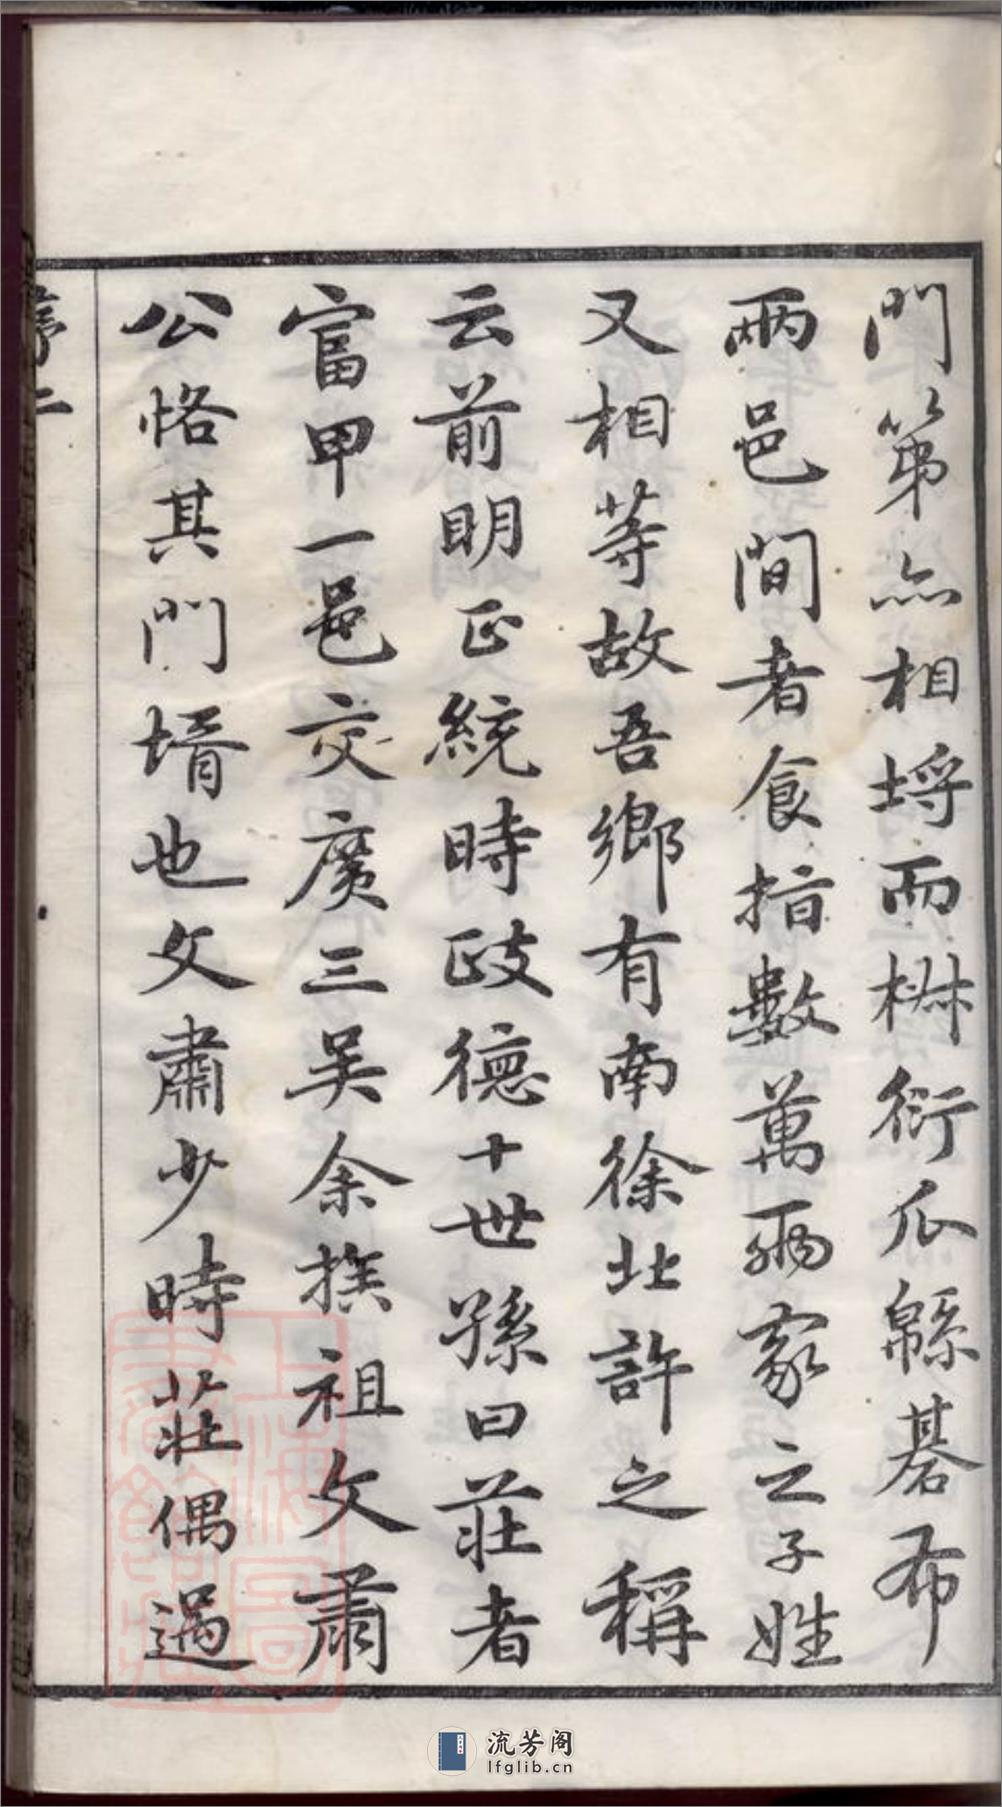 門第亦相埒而椒衍瓜緜碁布
兩邑間者食指數萬兩家之子姓
又相等故吾鄉有南徐北許之稱
云前明正統時政德十世孫曰莊者
富甲一邑交廣三吳余族祖文肅
公恪其門壻也文肅少時莊偶過
序二
流芳阁
lfglib.cn